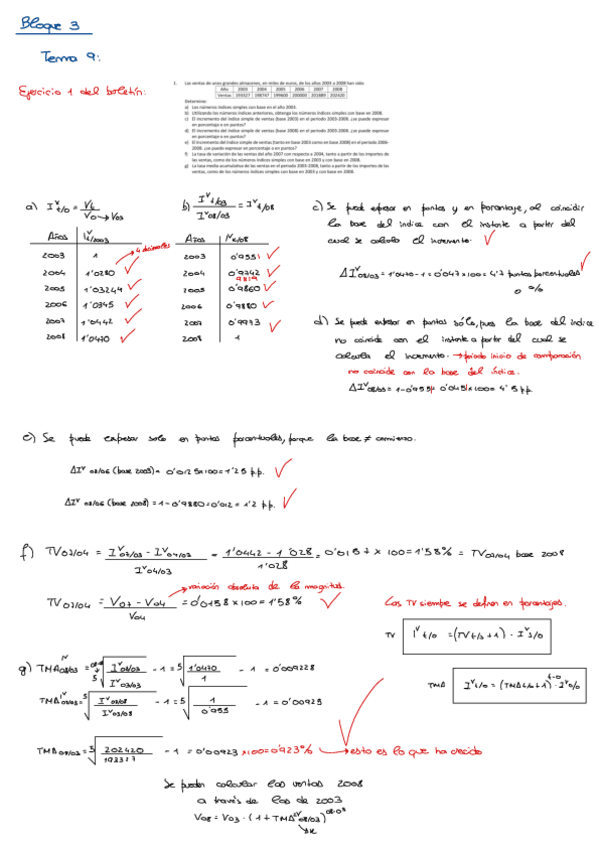 Bloque 3
Tema 9:
Ejercicio 1 del boletín:
1. Las ventas de unos grandes almacenes, en miles de euros, de los años 2003 a 2008 han sido:
Año 2003 2004 2005 2006 2007 2008
Ventas 193327 198747 199600 200000 201889 202420
Determine:
a) Los números índices simples con base en el año 2003.
b) Utilizando los números índices anteriores, obtenga los números índices simples con base en 2008.
c) El incremento del índice simple de ventas (base 2003) en el periodo 2003-2008. ¿se puede expresar en porcentaje o en puntos?
d) El incremento del índice simple de ventas (base 2008) en el periodo 2003-2008. ¿se puede expresar en porcentaje o en puntos?
e) El incremento del índice simple de ventas (tanto en base 2003 como en base 2008) en el periodo 2006-2008. ¿se puede expresar en porcentaje o en puntos?
f) La tasa de variación de las ventas del año 2007 con respecto a 2004, tanto a partir de los importes de las ventas, como de los números índices simples con base en 2003 y con base en 2008.
g) La tasa media acumulativa de las ventas en el periodo 2003-2008, tanto a partir de los importes de las ventas, como de los números índices simples con base en 2003 y con base en 2008.
a) I^v t/0 = Vt / V0 → V03
Años I^v t/2003
2003 1 → 4 decimales
2004 1'0280
2005 1'03244
2006 1'0345
2007 1'0442
2008 1'0470
b) I^v t/03 / I^v 08/03 = I^v t/08
Años I^v t/08
2003 0'9551
2004 0'9742 9819
2005 0'9860
2006 0'9880
2007 0'9973
2008 1
c) Se puede expresar en puntos y en porcentaje, al coincidir
la base del índice con el instante a partir del
cual se calcula el incremento.
ΔI^v 08/03 = 1'0470 - 1 = 0'047 x 100 = 4'7 puntos porcentuales
o %
d) Se puede expresar en puntos sólo, pues la base del índice
no coincide con el instante a partir del cual se
calcula el incremento. → periodo inicio de comparación
no coincide con la base del índice.
ΔI^v 08/03 = 1 - 0'9551 = 0'0451 x 100 = 4'5 p.p.
e) Se puede expresar solo en puntos porcentuales, porque la base ≠ comienzo.
ΔI^v 08/06 (base 2003) = 0'0125 x 100 = 1'25 p.p.
ΔI^v 08/06 (base 2008) = 1 - 0'9880 = 0'012 = 1'2 p.p.
f) TV 07/04 = I^v 07/03 - I^v 04/03 / I^v 04/03 = 1'0442 - 1'028 / 1'028 = 0'0157 x 100 = 1'58% = TV 07/04 base 2008
→ variación absoluta de la magnitud.
TV 07/04 = V07 - V04 / V04 = 0'0158 x 100 = 1'58%
Las TV siempre se definen en porcentajes.
TV I^v t/0 = (TV t/s + 1) · I^v s/0
g) TMA 08/03 = 5√ I^v 08/03 / I^v 03/03 - 1 = 5√ 1'0470 / 1 - 1 = 0'009228
TMA I^v t/0 = (TMA t/s + 1)^t-s · I^v s/0
TMA 08/03 = 5√ I^v 08/08 / I^v 03/08 - 1 = 5√ 1 / 0'955 - 1 = 0'00925
TMA 08/03 = 5√ 202420 / 193327 - 1 = 0'00923 x 100 = 0'923% → esto es lo que ha crecido
Se pueden calcular las ventas 2008
a través de las de 2003
V08 = V03 · (1 + TMA^v 08/03)^08-03